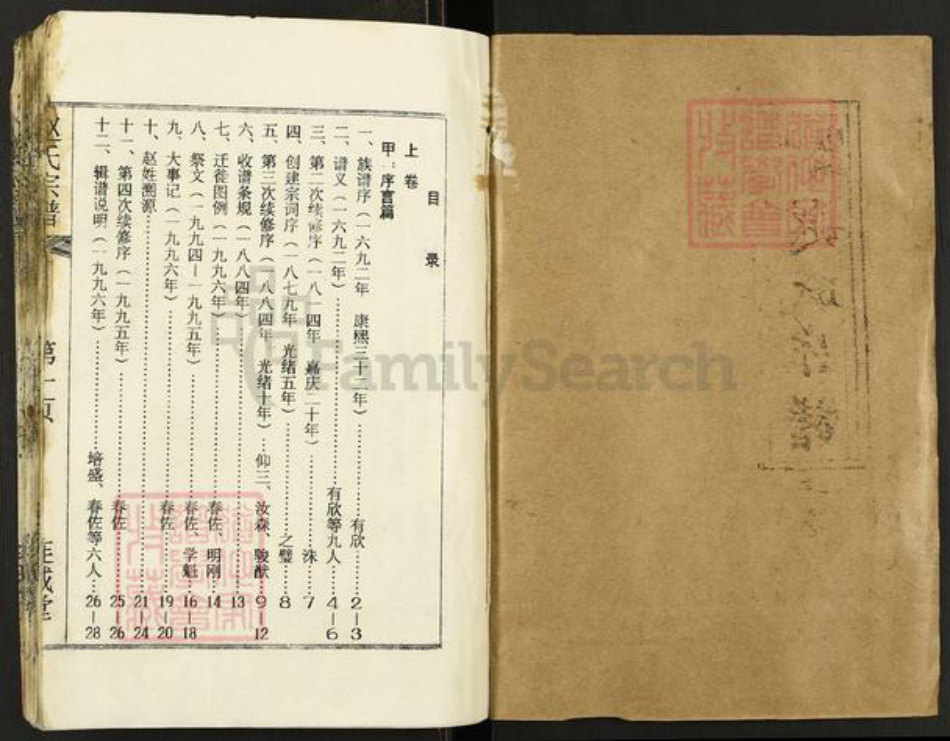 目 录
上卷
甲：序言篇
一、族谱序（一六九二年 康熙三十二年）……有欣……2—3
二、谱义（一六九二年）……有欣等九人…4—6
三、第二次续修序（一八一四年 嘉庆二十年）……洙……7
四、创建宗词序（一八七九年 光绪五年）……之璧……8
五、第三次续修序（一八八四年 光绪十年）…仰三、汝森、骏猷…9—12
六、收谱条规（一八八四年）……13
七、迁徙图例（一九九六年）……春佐、明刚…14
八、祭文（一九九四—一九九五年）……春佐、学魁…16—18
九、大事记（一九九六年）……春佐……19—20
十、赵姓溯源……21—24
十一、第四次续修序（一九九五年）……春佐……25—26
十二、辑谱说明（一九九六年）……培盛、春佐等六人…26—28
赵氏宗谱
FamilySearch